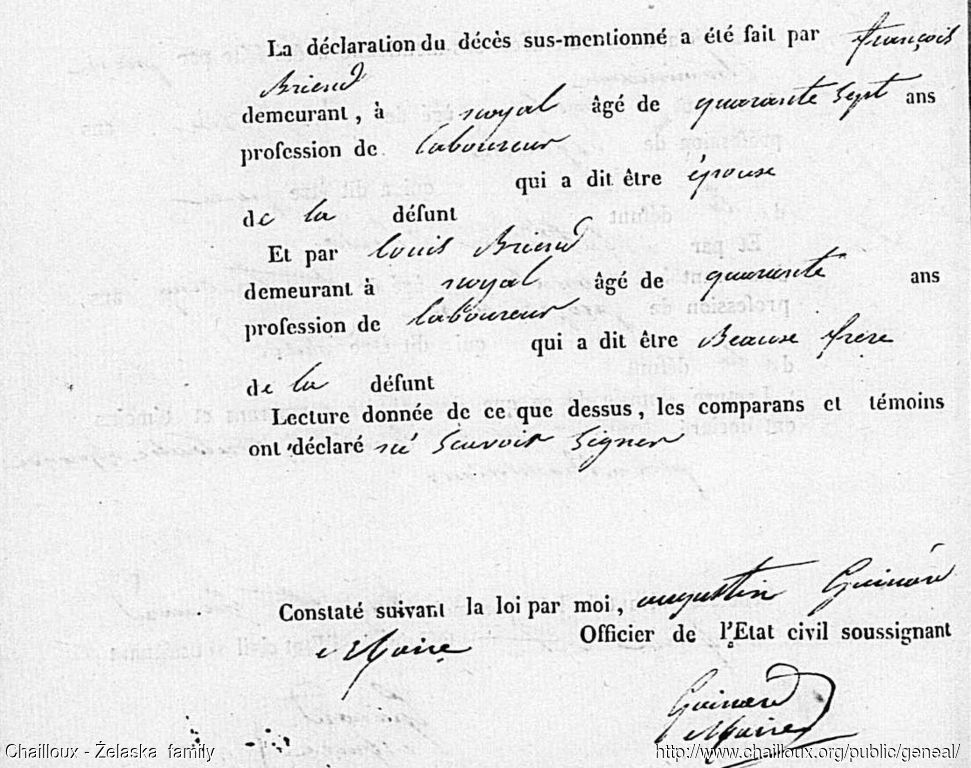 La déclaration du décès sus-mentionné a été fait par françois
Briend
demeurant, à noyal âgé de quarante sept ans
profession de laboureur
qui a dit être épouse
de la défunt
Et par louis Briend
demeurant à noyal âgé de quarante ans
profession de laboureur
qui a dit être Beause frere
de la défunt
Lecture donnée de ce que dessus, les comparans et témoins
ont déclaré né Scavoir Signer
Constaté suivant la loi par moi, augustin Guinard
Maire Officier de l'Etat civil soussignant
Guinard
Maire
Chailloux - Żelaska family
http://www.chailloux.org/public/geneal/